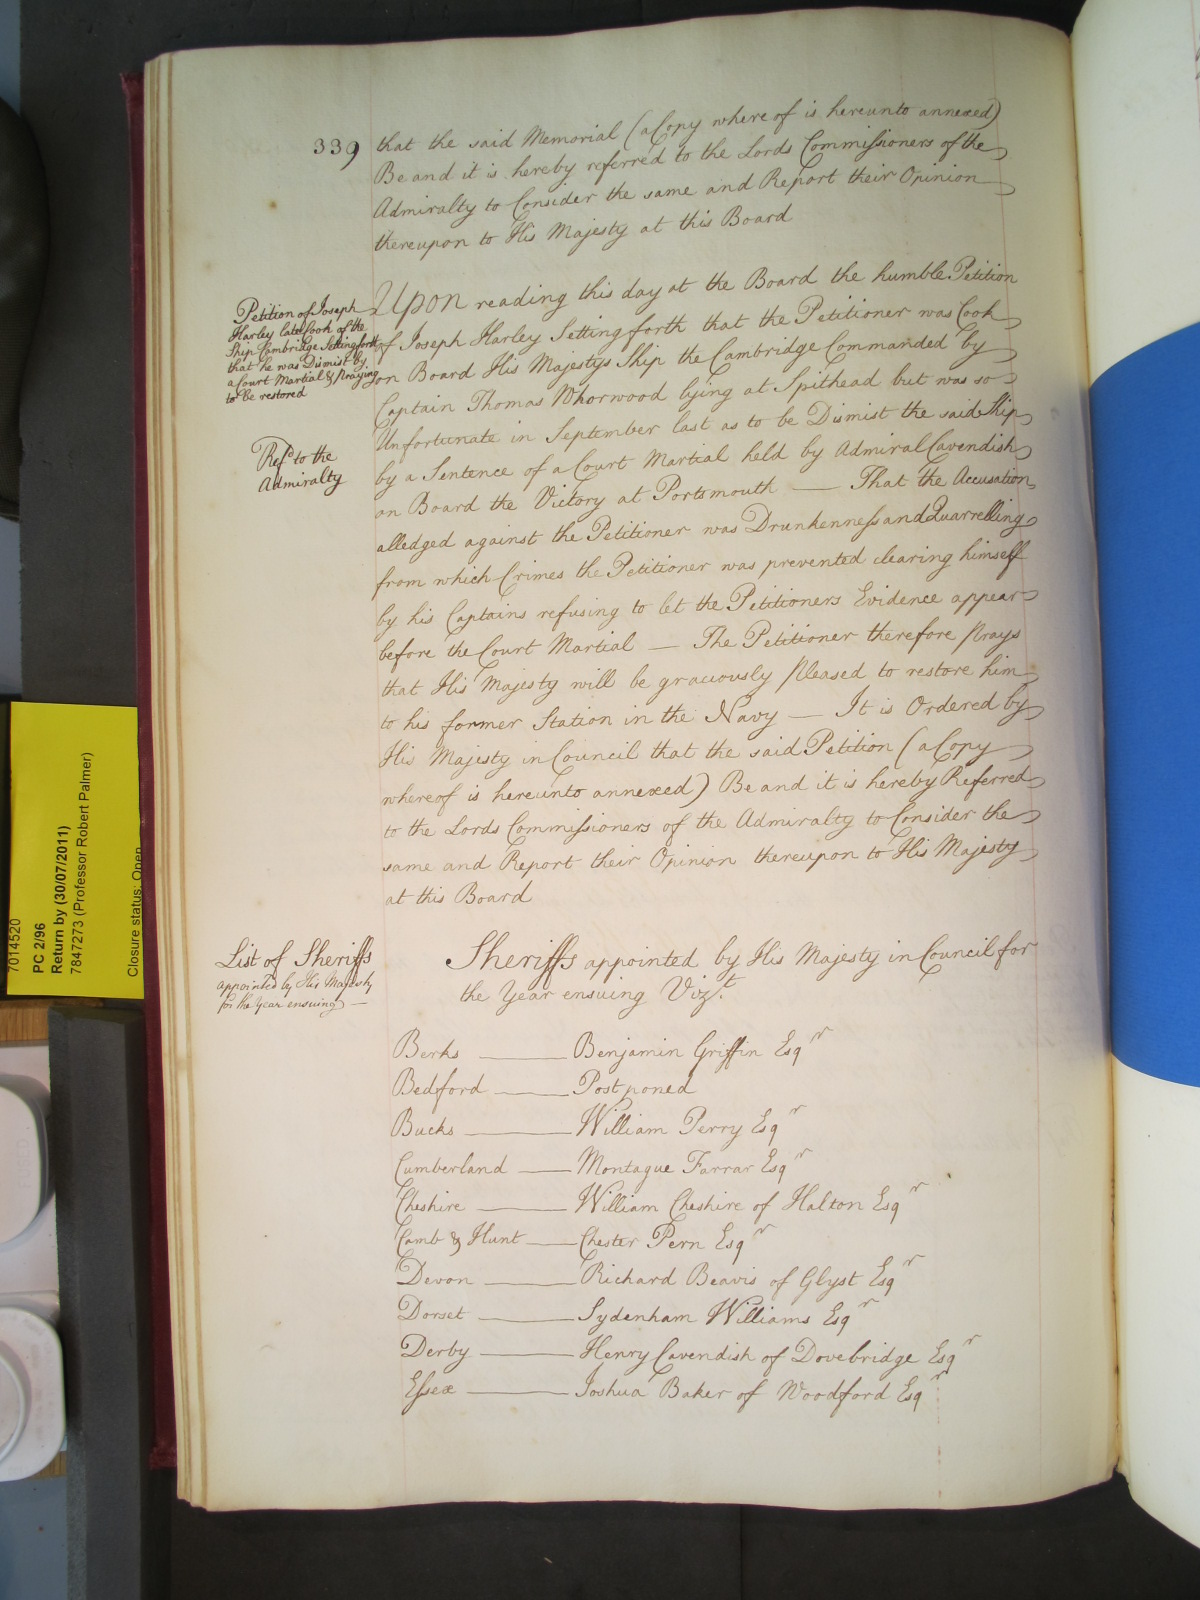 339
that the said Memorial (a Copy whereof is hereunto annexed)
Be and it is hereby referred to the Lords Commissioners of the
Admiralty to Consider the same and Report their Opinion
thereupon to His Majesty at this Board
Petition of Joseph
Harley late Cook of the
Ship Cambridge Setting forth
that he was Dismist by
a Court Martial & praying
to be restored
Refd to the
Admiralty
Upon reading this day at the Board the humble Petition
of Joseph Harley Setting forth that the Petitioner was Cook
on Board His Majestys Ship the Cambridge Commanded by
Captain Thomas Whorwood lying at Spithead but was so
Unfortunate in September last as to be Dismist the said Ship
by a Sentence of a Court Martial held by Admiral Cavendish
on Board the Victory at Portsmouth — That the Accusation
alledged against the Petitioner was Drunkenness and Quarrelling
from which Crimes the Petitioner was prevented clearing himself
by his Captains refusing to let the Petitioners Evidence appear
before the Court Martial — The Petitioner therefore prays
that His Majesty will be graciously pleased to restore him
to his former Station in the Navy — It is Ordered by
His Majesty in Council that the said Petition (a Copy
whereof is hereunto annexed) Be and it is hereby Referred
to the Lords Commissioners of the Admiralty to Consider the
same and Report their Opinion thereupon to His Majesty
at this Board
List of Sheriffs
appointed by His Majesty
for the Year ensuing —
Sheriffs appointed by His Majesty in Council for
the Year ensuing Vizt.
Berks — Benjamin Griffin Esqr
Bedford — Postponed
Bucks — William Perry Esqr
Cumberland — Montague Farrar Esqr
Cheshire — William Cheshire of Halton Esqr
Camb & Hunt — Chester Pern Esqr
Devon — Richard Beavis of Glyst Esqr
Dorset — Sydenham Williams Esqr
Derby — Henry Cavendish of Dovebridge Esqr
Essex — Joshua Baker of Woodford Esqr
7014520
PC 2/96
Return by (30/07/2011)
7847273 (Professor Robert Palmer)
Closure status: Open